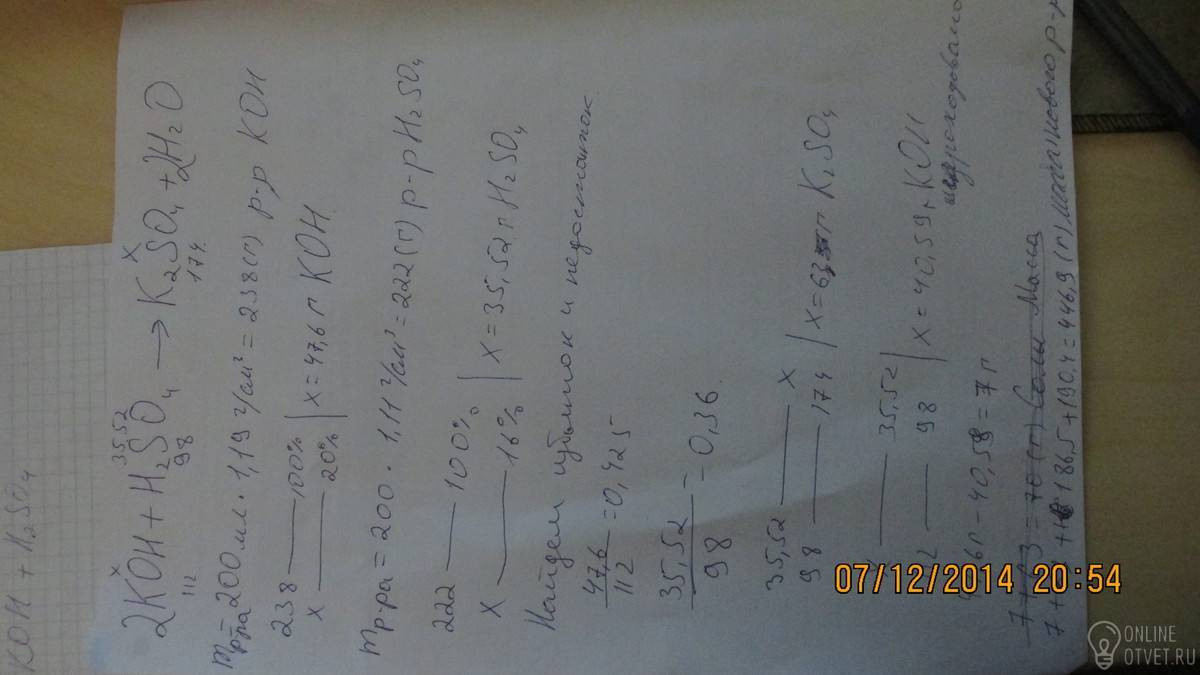 KOH + H₂SO₄
x 35,52 x
2KOH + H₂SO₄ → K₂SO₄ + 2H₂O
112 98 174
m р-ра = 200 мл · 1,19 г/см³ = 238(г) р-р KOH
238 — 100%
x — 20% | x = 47,6 г KOH
m р-ра = 200 · 1,11 г/см³ = 222(г) р-р H₂SO₄
222 — 100%
x — 16% | x = 35,52 г H₂SO₄
Найдем избыток и недостаток
47,6
112 = 0,425
35,52
98 = 0,36
35,52 — x
98 — 174 | x = 63 г K₂SO₄
— 35,52
— 98 | x = 40,59 г KOH
- 40,59 = 7 г
7 + 63 = 70 (г) Соли Масса
7 + 186,5 + 190,4 = 446,9 (г)
07/12/2014 20:54
ONLINE
OTVET.RU